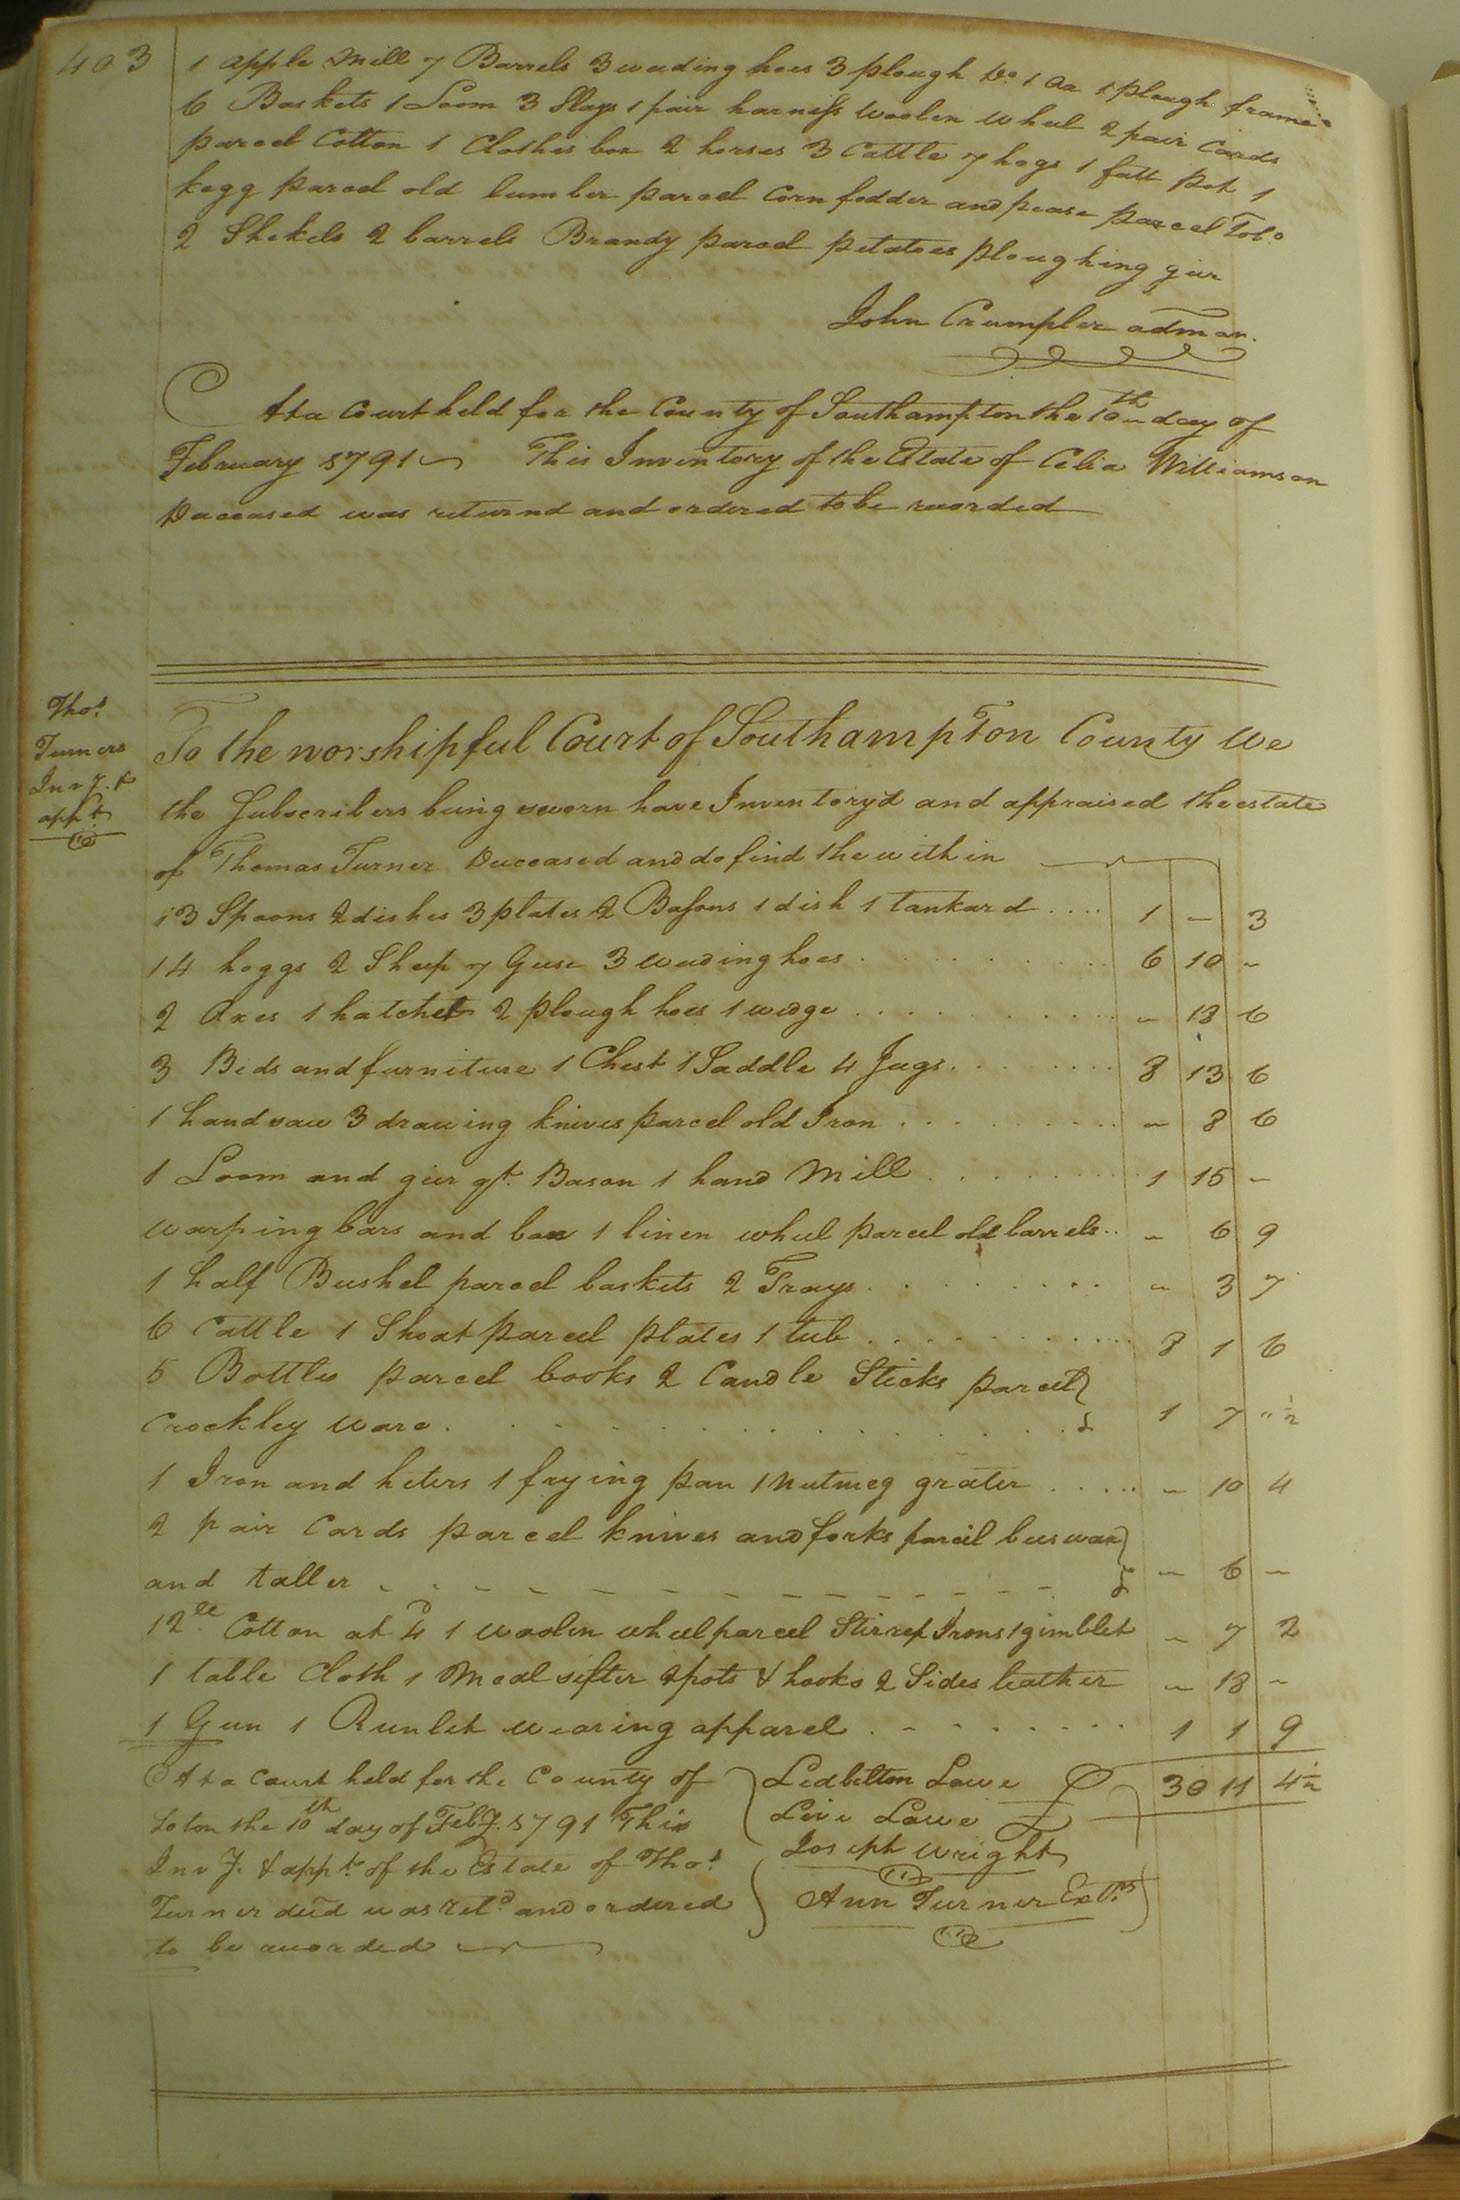 403
1 apple Mill 7 Barrels 3 weeding hoes 3 plough Do. 1 ax 1 plough frame
6 Baskets 1 Loom 3 Slays 1 pair harness woolen wheel 2 pair Cards
parcel Cotton 1 Clothes box 2 horses 3 Cattle 7 hogs 1 fatt pot 1
kegg parcel old lumber parcel Corn fodder and pease parcel Tobo.
2 Shekels 2 barrels Brandy parcel potatoes ploughing geir
John Crumpler adman.
At a Court held for the County of Southampton the 10th day of
February 1791 This Inventory of the Estate of Celia Williamson
Deceased was returnd and ordered to be recorded
Thos.
Turners
Invy. &
appt.
To the worshipful Court of Southampton County We
the Subscribers being sworn have Inventory'd and appraised the estate
of Thomas Turner Deceased and do find the within
13 Spoons 2 dishes 3 plates 2 Basons 1 dish 1 tankard .... 1 - 3
14 hoggs 2 Sheep 7 Geese 3 weeding hoes . . . . 6 10 -
2 Axes 1 hatchet 2 plough hoes 1 wedge . . . . - 18 6
3 Beds and furniture 1 Chest 1 Saddle 4 Jugs . . . . 8 13 6
1 handsaw 3 drawing knives parcel old Iron . . . . - 8 6
1 Loom and geir qt. Bason 1 hand Mill . . . . 1 15 -
warping bars and box 1 linen wheel parcel old barrels .. - 6 9
1 half Bushel parcel baskets 2 Trays . . . . - 3 7
6 Cattle 1 Shoat parcel plates 1 tub . . . . 8 1 6
5 Bottles parcel books 2 Candle Sticks parcel
Crockley ware . . . . 1 7 " ½
1 Iron and heters 1 frying pan 1 nutmeg grater ..... - 10 4
2 pair Cards parcel knives and forks parcel beeswax
and taller - - - - - 6 -
12lb Cotton at 4d 1 woolen wheel parcel Stirrep Irons 1 gimblet - 7 2
1 table Cloth 1 Meal sifter 2 pots & hooks 2 Sides leather - 18 -
1 Gun 1 Runlet wearing apparel . . . . 1 1 9
30 11 4½
At a Court held for the County of
Soton the 10th day of Feby. 1791 This
Invy. & appt. of the Estate of Thos.
Turner decd was retd. and ordered
to be recorded
Ledbetton Lowe
Levi Lowe
Joseph Wright
Ann Turner Extrs.